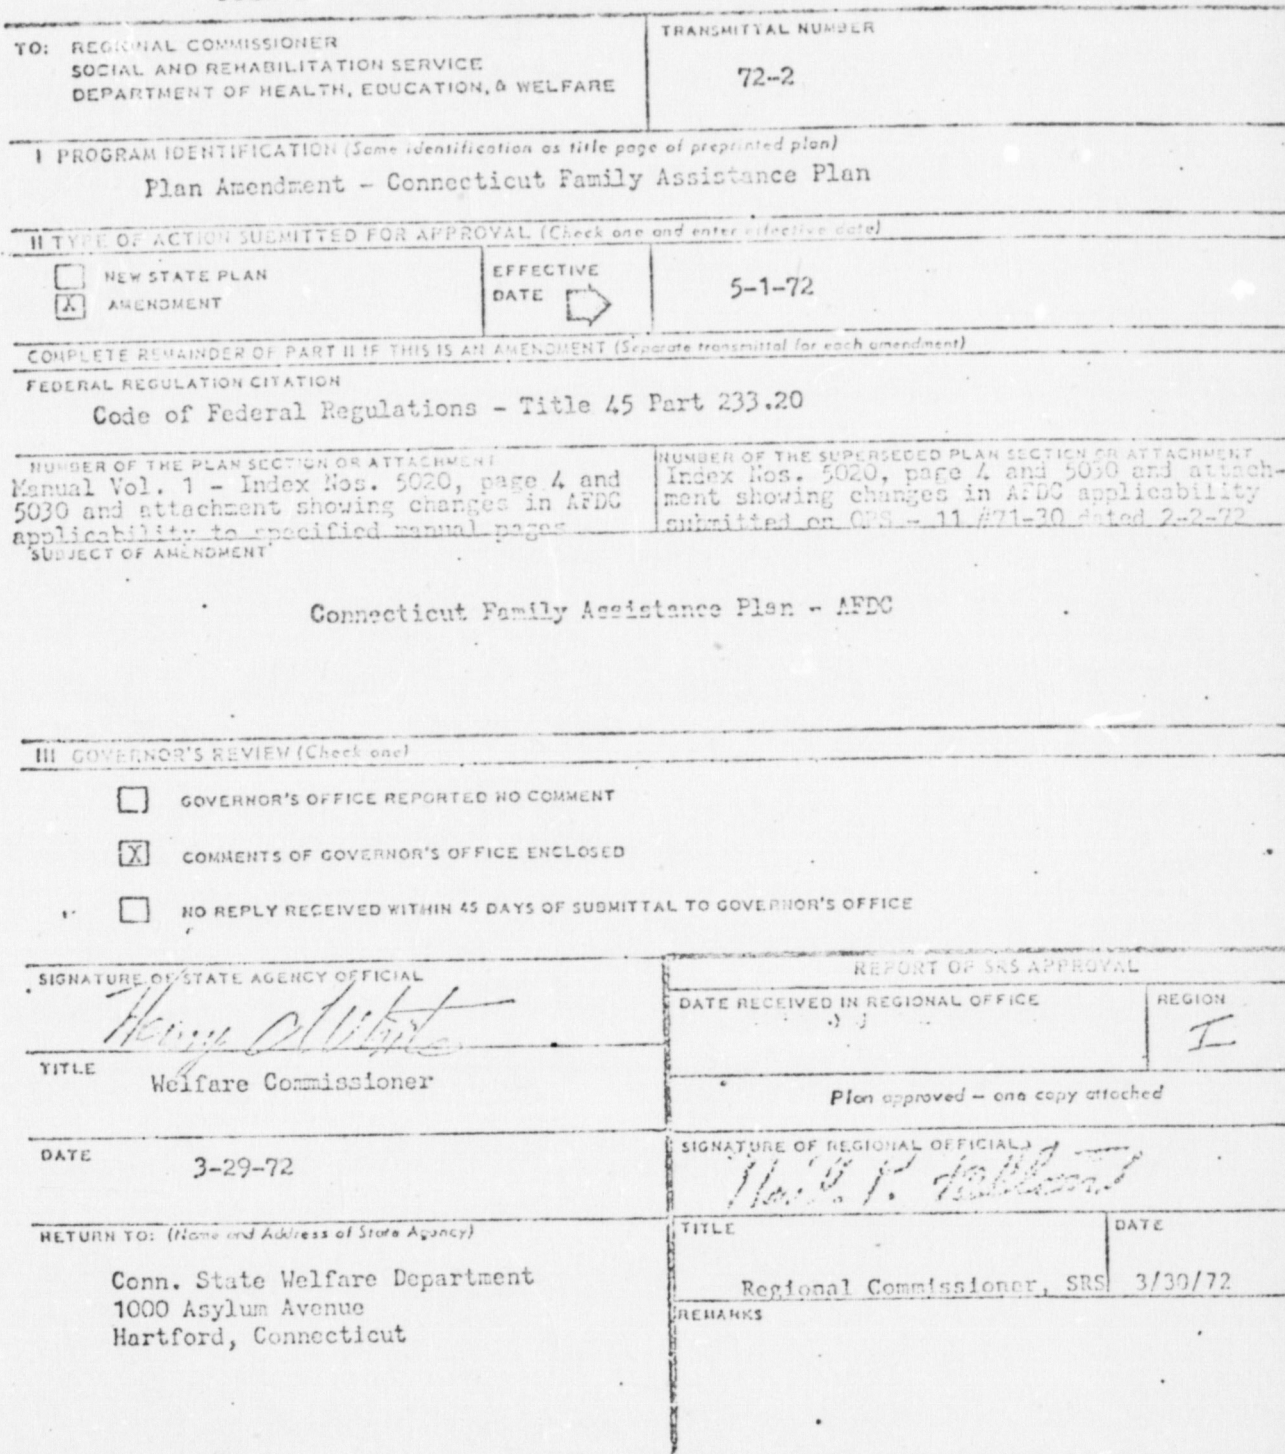 TO: REGIONAL COMMISSIONER
SOCIAL AND REHABILITATION SERVICE
DEPARTMENT OF HEALTH, EDUCATION, & WELFARE
TRANSMITTAL NUMBER
72-2
I PROGRAM IDENTIFICATION (Same identification as title page of preprinted plan)
Plan Amendment - Connecticut Family Assistance Plan
II TYPE OF ACTION SUBMITTED FOR APPROVAL (Check one and enter effective date)
NEW STATE PLAN
X AMENDMENT
EFFECTIVE
DATE
5-1-72
COMPLETE REMAINDER OF PART II IF THIS IS AN AMENDMENT (Separate transmittal for each amendment)
FEDERAL REGULATION CITATION
Code of Federal Regulations - Title 45 Part 233.20
NUMBER OF THE PLAN SECTION OR ATTACHMENT
Manual Vol. 1 - Index Nos. 5020, page 4 and
5030 and attachment showing changes in AFDC
applicability to specified manual pages
NUMBER OF THE SUPERSEDED PLAN SECTION OR ATTACHMENT
Index Nos. 5020, page 4 and 5030 and attach-
ment showing changes in AFDC applicability
submitted on OPS - 11 #71-30 dated 2-2-72
SUBJECT OF AMENDMENT
Connecticut Family Assistance Plan - AFDC
III GOVERNOR'S REVIEW (Check one)
GOVERNOR'S OFFICE REPORTED NO COMMENT
X COMMENTS OF GOVERNOR'S OFFICE ENCLOSED
NO REPLY RECEIVED WITHIN 45 DAYS OF SUBMITTAL TO GOVERNOR'S OFFICE
SIGNATURE OF STATE AGENCY OFFICIAL
Henry White
TITLE
Welfare Commissioner
DATE
3-29-72
RETURN TO: (Name and Address of State Agency)
Conn. State Welfare Department
1000 Asylum Avenue
Hartford, Connecticut
REPORT OF SRS APPROVAL
DATE RECEIVED IN REGIONAL OFFICE
REGION
I
Plan approved - one copy attached
SIGNATURE OF REGIONAL OFFICIAL
TITLE
Regional Commissioner, SRS
DATE
3/30/72
REMARKS